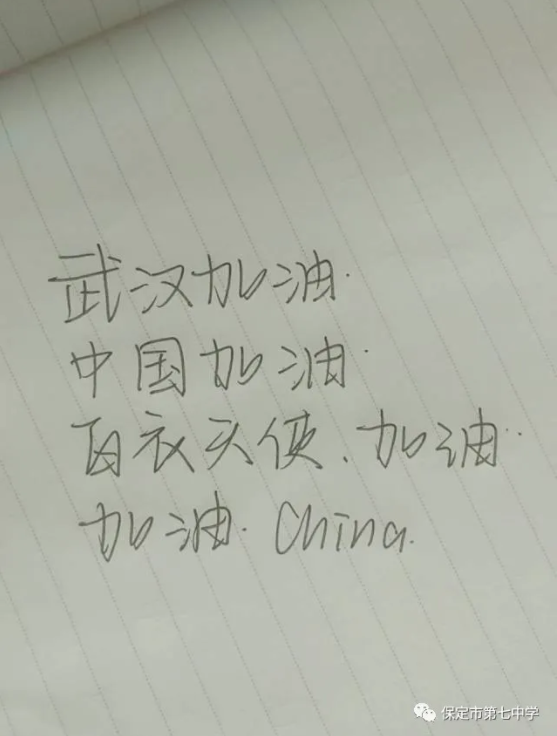 武汉加油.
中国加油.
百衣天使、加油..
加油. China.
保定市第七中学